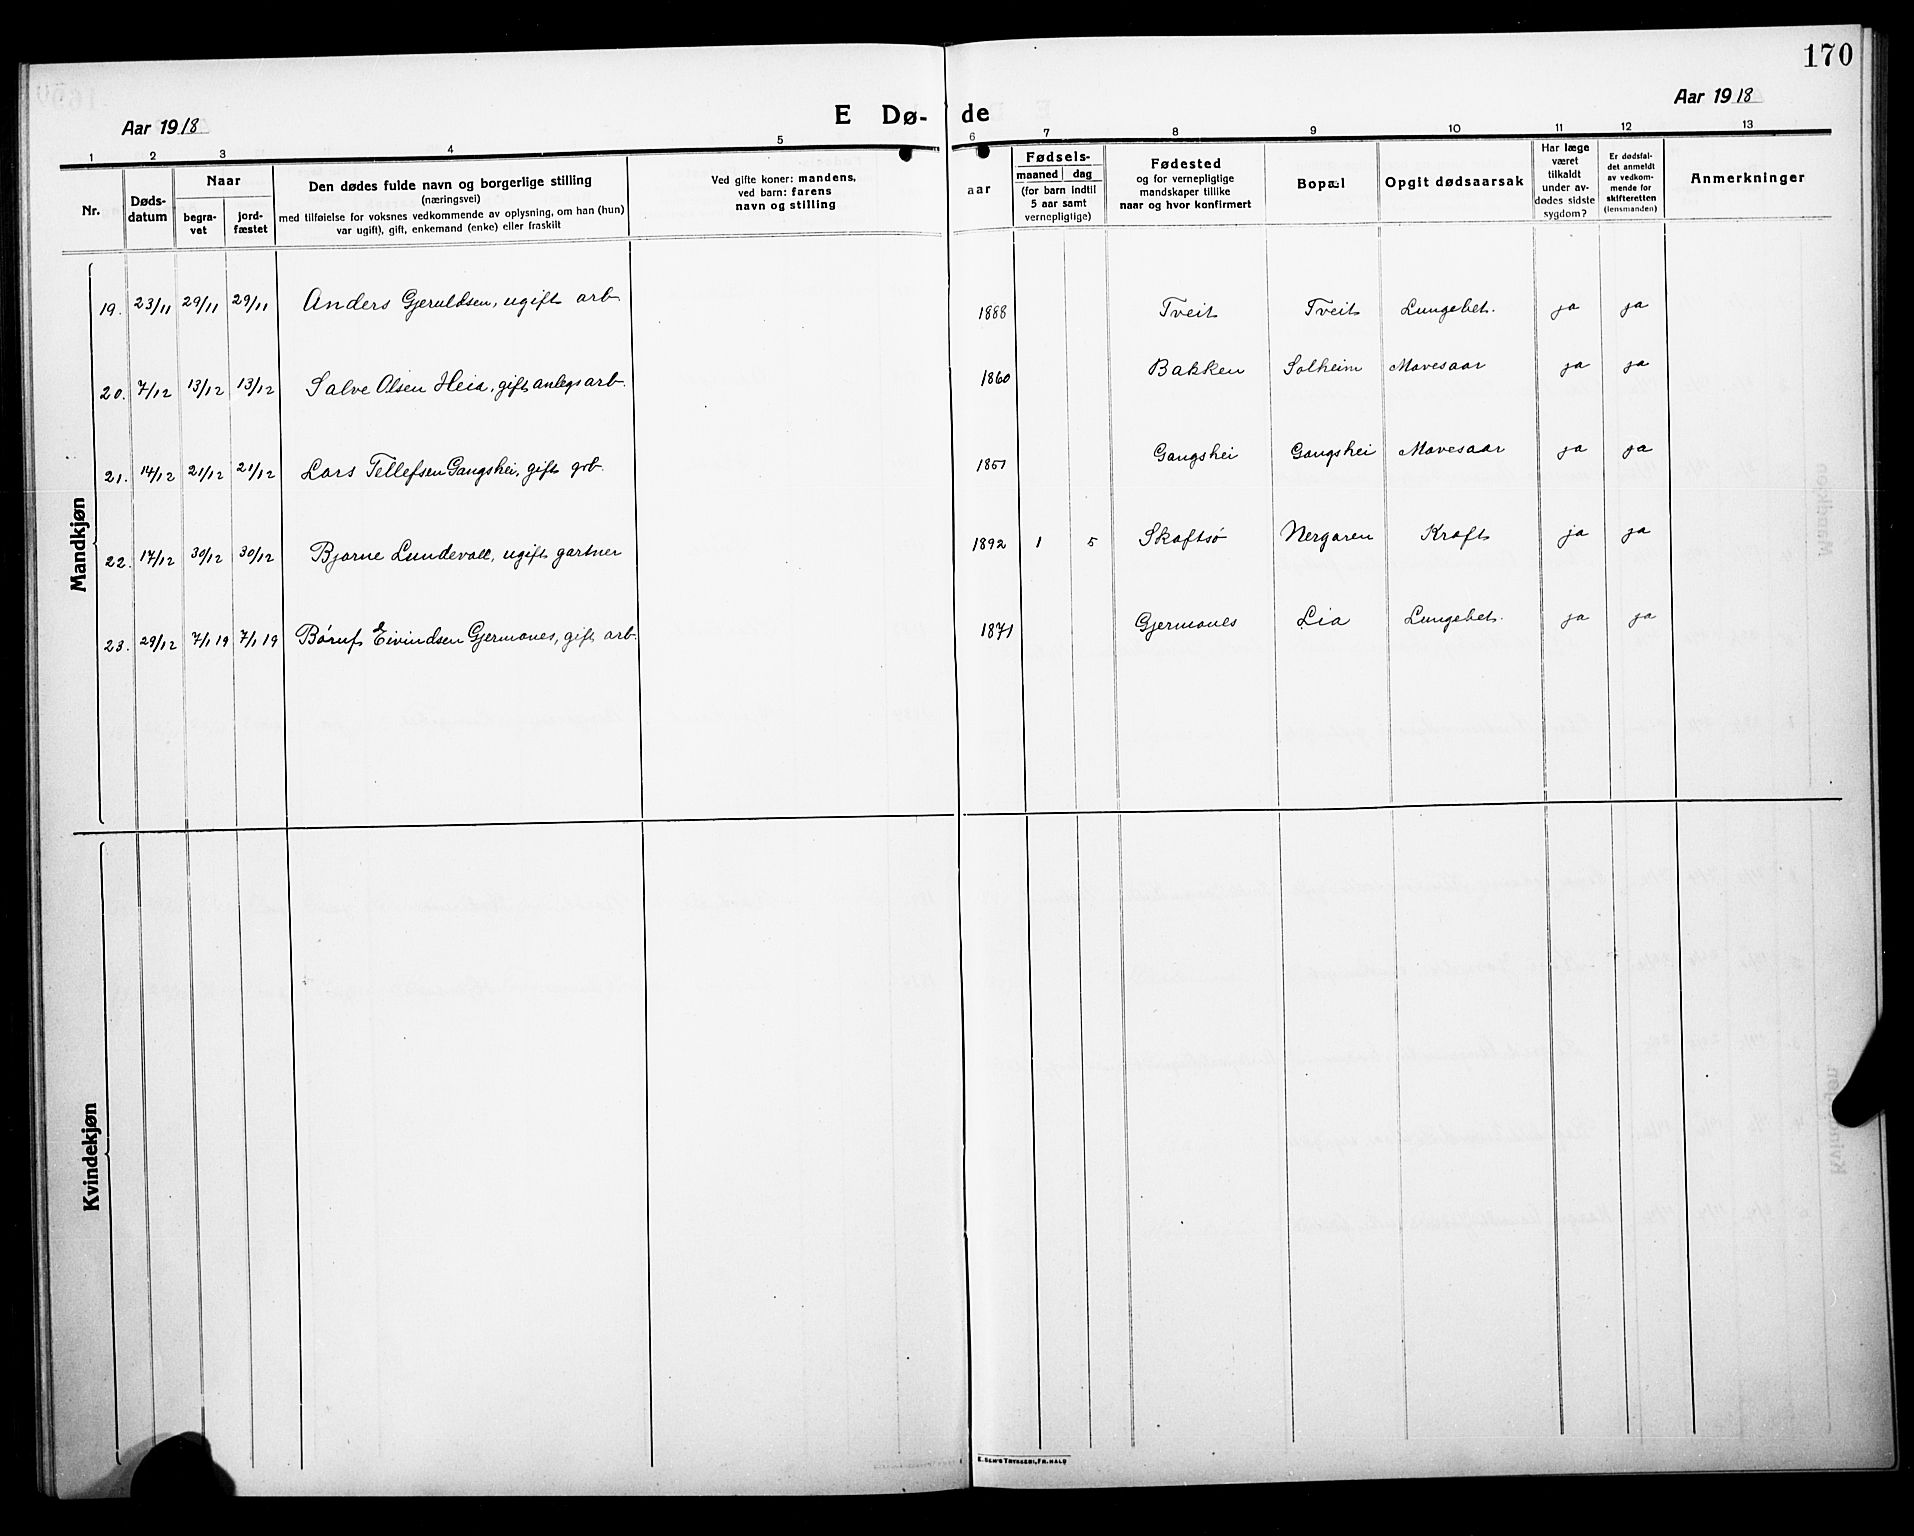 170
Aar 1918
E Dø- de
Aar 1918
1 2 3 4 5 6 7 8 9 10 11 12 13
Nr.
Døds-
datum
Naar
begra-
vet
jord-
fæstet
Den dødes fulde navn og borgerlige stilling
(næringsvei)
med tilføielse for voksnes vedkommende av oplysning, om han (hun)
var ugift), gift, enkemand (enke) eller fraskilt
Ved gifte koner: mandens,
ved barn: farens
navn og stilling
aar
Fødsels-
maaned dag
(for barn indtil
5 aar samt
vernepligtige)
Fødested
og for vernepligtige
mandskaper tillike
naar og hvor konfirmert
Bopæl
Opgit dødsaarsak
Har læge
været
tilkaldt
under av-
dødes sidste
sygdom?
Er dødsfal-
det anmeldt
av vedkom-
mende for
skifteretten
(lensmanden)
Anmerkninger
Mandkjøn
19. 23/11 29/11 29/11 Anders Gjeruldsen, ugift arb 1888 Tveit Tveit Lungebet. ja ja
20. 7/12 13/12 13/12 Salve Olsen Heia, gift anlegsarb. 1860 Bakken Solheim Mavesaar ja ja
21. 14/12 21/12 21/12 Lars Tellefsen Gangshei, gift grb. 1851 Gangshei Gangshei Mavesaar ja ja
22. 17/12 30/12 30/12 Bjarne Lundevall, ugift gartner 1892 1 5 Skaftsø Nergaren Kræft ja ja
23. 29/12 7/1 19 7/1 19 Børuf Eivindsen Gjermanes, gift arb. 1871 Gjermanes Lia Lungebet. ja ja
Kvindekjøn
E. SEM'S TRYKKERI, FR.HALD